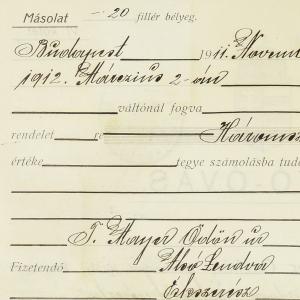 Másolat — 20 fillér bélyeg.
Budapest 1911. Novem
1912. Márczius 2-án
váltónál fogva
rendelet re Háromsz
értéke tegye számolásba tudó
T. Mayer Ödön úr
Fizetendő Alsó Lendva
Ékszerész